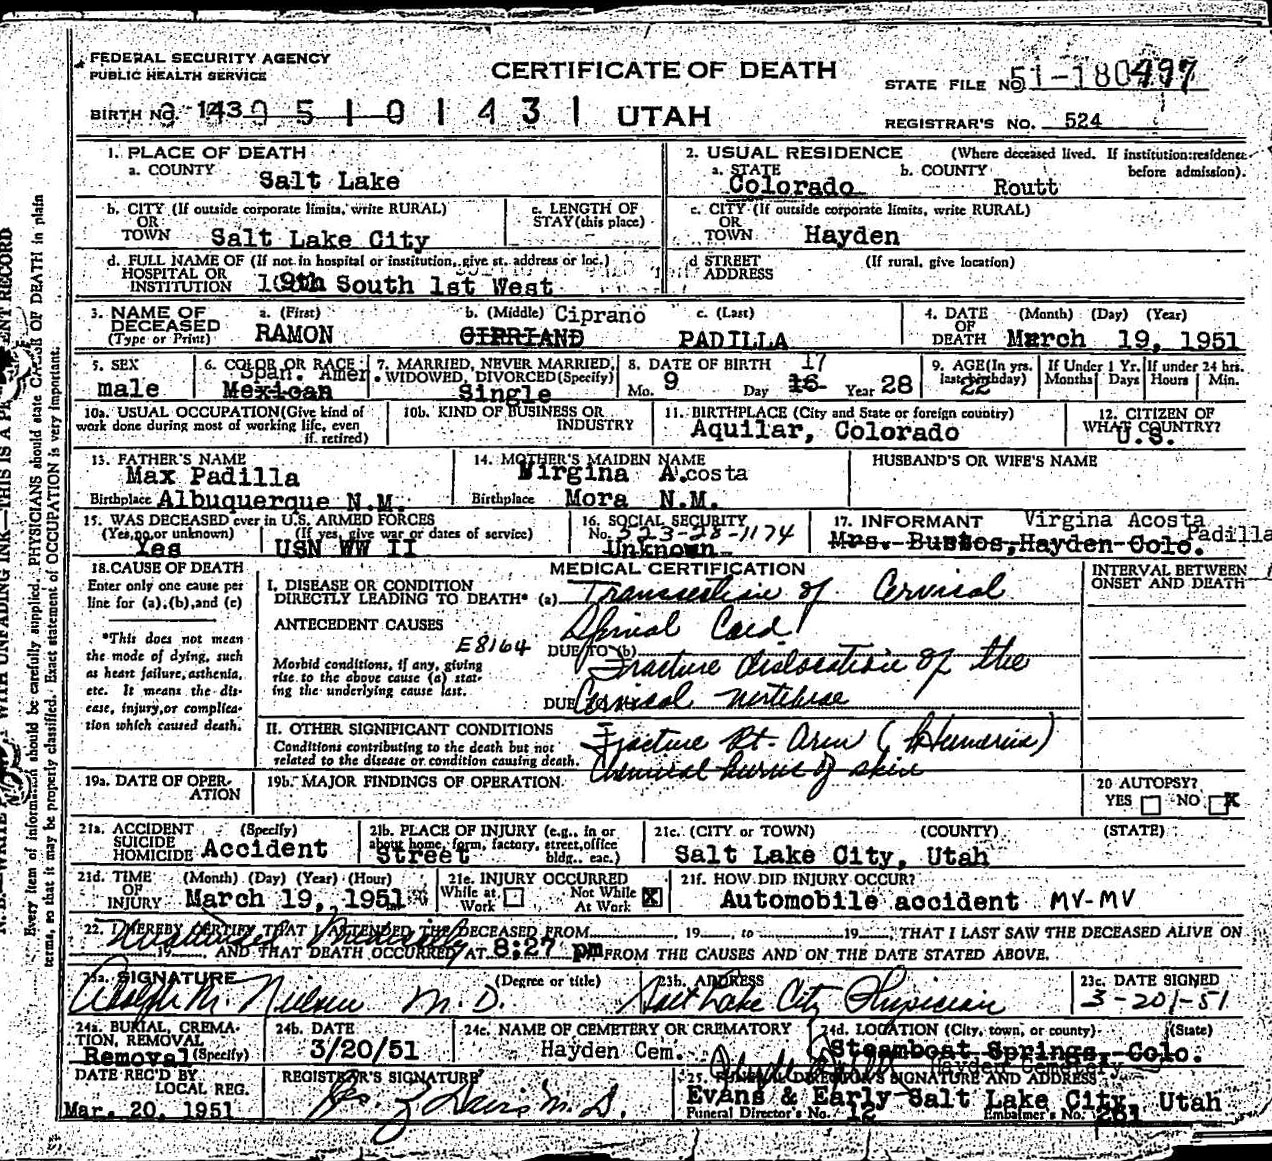 FEDERAL SECURITY AGENCY
PUBLIC HEALTH SERVICE
CERTIFICATE OF DEATH
STATE FILE NO. 51-180497
BIRTH NO. 143 9 5 1 0 1 4 3 1 UTAH
REGISTRAR'S NO. 524
1. PLACE OF DEATH
a. COUNTY
Salt Lake
2. USUAL RESIDENCE (Where deceased lived. If institution:residence before admission).
a. STATE b. COUNTY
Colorado Routt
b. CITY (If outside corporate limits, write RURAL)
OR
TOWN Salt Lake City
c. LENGTH OF
STAY (this place)
c. CITY (If outside corporate limits, write RURAL)
OR
TOWN Hayden
d. FULL NAME OF (If not in hospital or institution, give st. address or loc.)
HOSPITAL OR
INSTITUTION 9th South 1st West
d STREET (If rural, give location)
ADDRESS
3. NAME OF a. (First) b. (Middle) Ciprano c. (Last)
DECEASED
(Type or Print) RAMON CIPRIANO PADILLA
4. DATE (Month) (Day) (Year)
OF
DEATH March 19, 1951
5. SEX
male
6. COLOR OR RACE
Span. Amer.
Mexican
7. MARRIED, NEVER MARRIED,
WIDOWED, DIVORCED (Specify)
Single
8. DATE OF BIRTH 17
Mo. 9 Day 16 Year 28
9. AGE (In yrs.
last birthday)
22
If Under 1 Yr.
Months Days
If under 24 hrs.
Hours Min.
10a. USUAL OCCUPATION (Give kind of
work done during most of working life, even
if retired)
10b. KIND OF BUSINESS OR
INDUSTRY
11. BIRTHPLACE (City and State or foreign country)
Aquilar, Colorado
12. CITIZEN OF
WHAT COUNTRY?
U.S.
13. FATHER'S NAME
Max Padilla
Birthplace Albuquerque N.M.
14. MOTHER'S MAIDEN NAME
Virgina Acosta
Birthplace Mora N.M.
HUSBAND'S OR WIFE'S NAME
15. WAS DECEASED ever in U.S. ARMED FORCES
(Yes,no,or unknown) (If yes, give war or dates of service)
Yes USN WW II
16. SOCIAL SECURITY
No. 523-28-1174
Unknown
17. INFORMANT Virgina Acosta Padilla
Mrs. Bustos, Hayden Colo.
18. CAUSE OF DEATH
Enter only one cause per
line for (a), (b), and (c)
*This does not mean
the mode of dying, such
as heart failure, asthenia,
etc. It means the dis-
ease, injury, or complica-
tion which caused death.
MEDICAL CERTIFICATION
INTERVAL BETWEEN
ONSET AND DEATH
I. DISEASE OR CONDITION
DIRECTLY LEADING TO DEATH* (a) Transection of Cervical
Spinal Cord
ANTECEDENT CAUSES
E8164 DUE TO (b)
Fracture dislocation of the
Morbid conditions, if any, giving
rise to the above cause (a) stat-
ing the underlying cause last.
DUE Cervical vertebrae
II. OTHER SIGNIFICANT CONDITIONS
Conditions contributing to the death but not
related to the disease or condition causing death.
Fracture Rt. Arm (Humerus)
Chemical burns of skin
19a. DATE OF OPER-
ATION
19b. MAJOR FINDINGS OF OPERATION
20 AUTOPSY?
YES NO X
21a. ACCIDENT (Specify)
SUICIDE
HOMICIDE Accident
21b. PLACE OF INJURY (e.g., in or
about home, farm, factory, street, office
bldg., eac.)
Street
21c. (CITY or TOWN) (COUNTY) (STATE)
Salt Lake City, Utah
21d. TIME (Month) (Day) (Year) (Hour)
OF
INJURY March 19, 1951
21e. INJURY OCCURRED
While at Work Not While At Work X
21f. HOW DID INJURY OCCUR?
Automobile accident MV-MV
22. I HEREBY CERTIFY THAT I ATTENDED THE DECEASED FROM 19 , to 19 , THAT I LAST SAW THE DECEASED ALIVE ON
19 , AND THAT DEATH OCCURRED AT 8:27 pm FROM THE CAUSES AND ON THE DATE STATED ABOVE.
23a. SIGNATURE (Degree or title)
Adolph M. Nielsen M.D.
23b. ADDRESS
Salt Lake City Physician
23c. DATE SIGNED
3-20-51
24a. BURIAL, CREMA-
TION, REMOVAL
Removal (Specify)
24b. DATE
3/20/51
24c. NAME OF CEMETERY OR CREMATORY
Hayden Cem.
24d. LOCATION (City, town, or county) (State)
Steamboat Springs, Colo.
Hayden Cemetery
DATE REC'D BY
LOCAL REG.
Mar. 20, 1951
REGISTRAR'S SIGNATURE
M.D.
25. FUNERAL DIRECTOR'S SIGNATURE AND ADDRESS
Evans & Early-Salt Lake City, Utah
Funeral Director's No. 12 Embalmer's No. 261
Every item of information should be carefully supplied. PHYSICIANS should state CAUSE OF DEATH in plain
terms, so that it may be properly classified. Exact statement of OCCUPATION is very important.
WITH UNFADING INK—THIS IS A RECORD